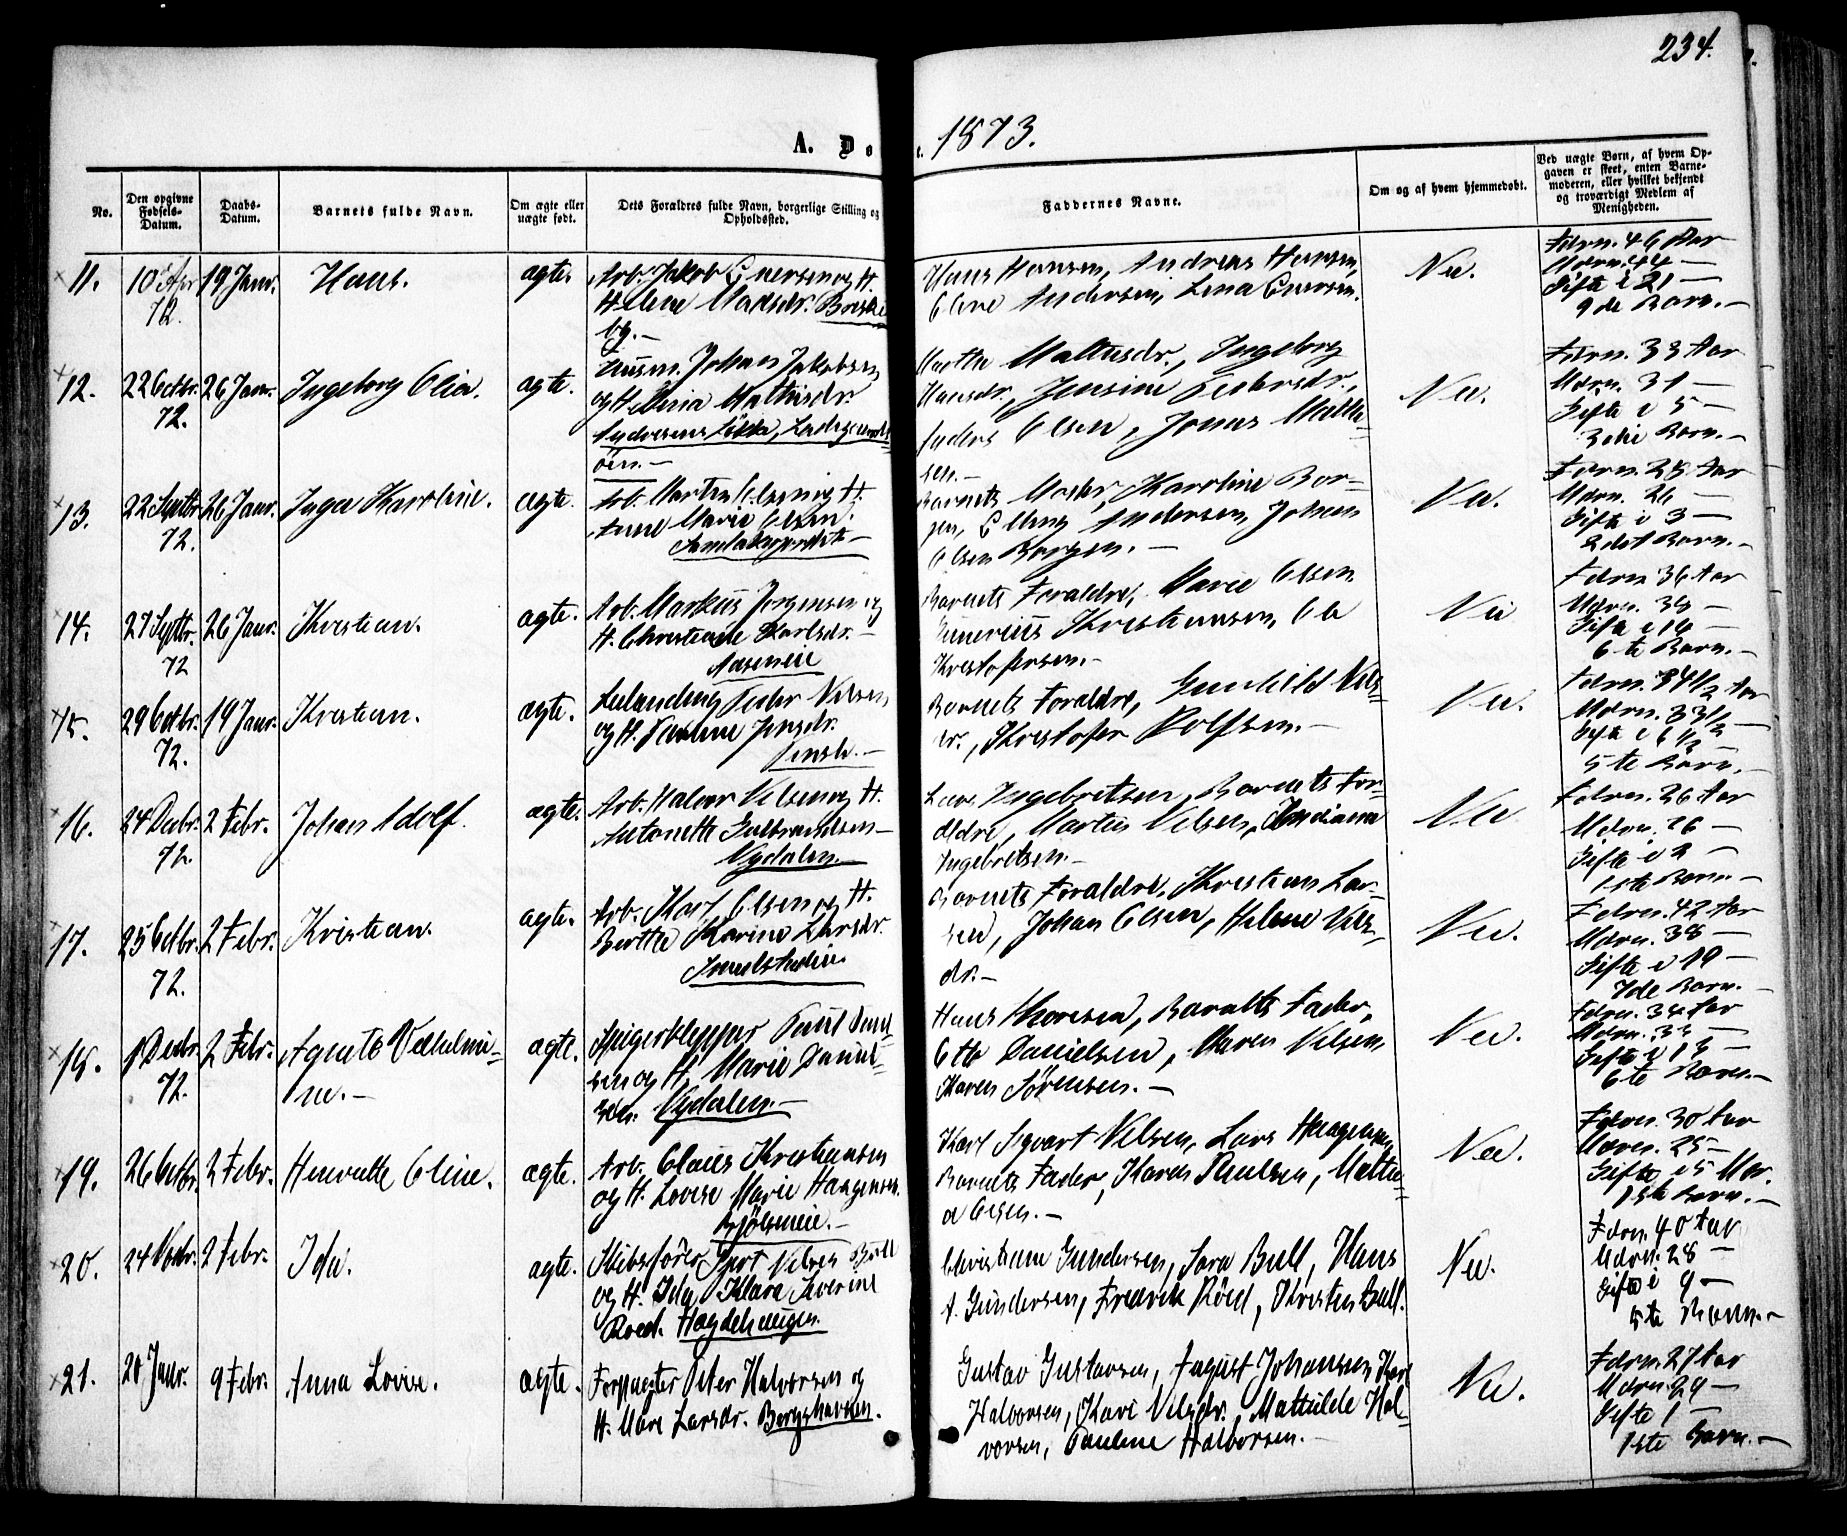 234.
A. Dø
e. 1873.
No.
Den opgivne Fødsels-Datum.
Daabs-Datum.
Barnets fulde Navn.
Om ægte eller uægte født.
Dets Forældres fulde Navn, borgerlige Stilling og Opholdssted.
Faddernes Navne.
Om og af hvem hjemmedøbt.
Ved uægte Børn, af hvem Opgaven er skeet, enten Barnemoderen, eller hvilket bekjendt og troværdigt Medlem af Menigheden.
11. 10 72. 19 Janr. Hans. ægte.
Arb. Jakob Enersen og H.
Helene
Hans Hansen, Andreas Hansen,
Oline Andersen, Lina Enersen.
Nei.
Fdrn. 46 Aar
Mdrn. 44 —
Gifte i 21 —
9de Barn. —
12. 22 Octbr. 72. 26 Janr. Ingeborg Olia. ægte.
Husm. Johan Jakobsen
og H. Maria Mathisdr.
Andersens Løkke,
øen. —
Marthe Mathisdr., Ingeborg
Hansdr., Jensine Pedersdr.,
Anders Olsen, Jonas Mathi-
sen. —
Nei.
Fdrn. 33 Aar
Mdrn. 31 —
Gifte i 5 —
3die Barn. —
13. 22 Septbr. 72. 26 Janr. Inga Karoline. ægte.
Arb. Martin Olsen og H.
Anne Marie Olsen.
Barnets Moder, Karoline Bor-
gen, Elling Andersen, Johan
Olsen Borgen. —
Nei.
Fdrn. 28 Aar
Mdrn. 26 —
Gifte i 3 —
2det Barn. —
14. 27 Septbr. 72 26 Janr. Kristian. ægte.
Arb. Markus Jørgensen og
H. Christiane Karlsdr. —
Barnets Forældre, Marie Olsen,
Gunerius Kristiansen, Ole
Kristofersen. —
Nei
Fdrn 36 Aar
6te Barn. —
15. 29 Octbr. 72. 19 Janr. Kristian. ægte.
Leilending Peder Nilsen,
og H. Pauline Jensdr.
Barnets Forældre, Gunhild Nils-
dr., Kristofer Rolfsen. —
Nei.
Fdrn. 34 1/2 Aar
Mdrn. 33 1/2 —
Gifte i 6 1/2 —
5te Barn. —
16. 24 Decbr. 72. 2 Febr. Johan Adolf. ægte.
Arb. Halvor Nilsen og H.
Antonette Gulbrandsen —
Nydalen. —
Lars Ingebretsen, Barnets For-
ældre, Martin Nilsen, Indiana
Ingebretsen. —
Nei
Fdrn. 26 Aar
Mdrn. 26 —
Gifte i 2 —
1ste Barn. —
17. 25 Octbr. 72. 2 Febr. Kristian. ægte.
Arb. Karl Olsen og H.
Berthe Karine Larsdr.
Barnets Forældre, Kristian Lar-
sen, Johan Olsen, Helene Nils-
dr. —
Nei.
Fdrn. 42 Aar
Mdrn. 38 —
Gifte i 19 —
7de Barn. —
18. 1 Decbr. 72. 2 Febr. Agnete Vilhelmi-
ne. — ægte.
Spigerklipper Paul Daniel-
sen og H. Marie Daniel-
sen. Nydalen. —
Hans Thoresen, Barnets Fader,
Otto Danielsen, Maren Nilsen,
Karen Sørensen. —
Nei.
Fdrn. 34 Aar
Mdrn. 33 —
Gifte i 13 —
6te Barn. —
19. 26 Octbr. 2 Febr. Henriette Oline. ægte.
Arb. Claus Kristiansen
og H. Lovise Marie Haagensen.
Bjølseneie. —
Karl Sigvart Nilsen, Lars Haagensen,
Barnets Fader, Karen Paulsen, Mathil-
d Olsen. —
Nei.
Fdrn. 30 Aar
Mdrn. 25 —
Gifte i 5 Mdr.
1ste Barn. —
20. 24 Novbr. 2 Febr. Ida. ægte.
Skibsfører Gjert Nilsen Bull
og H. Ida Klara Severine
Roed. Hægdehaugen.
Christiane Gundersen, Sara Bull, Hans
A. Gundersen, Fredrik Röed, Kristen Bull.
Nei.
Fdrn. 40 Aar
Mdrn. 28 —
Gifte i 9 —
5te Barn. —
21. 20 Janr. 9 Febr. Anna Lovise. ægte.
Forpagter Peter Halvorsen og
H. Mari Larsdr. Bergshavnen.
Gustav Gustavsen, August Johansen, Karl
Halvorsen, Kari Nilsdr., Mathilde Hal-
vorsen, Pauline Halvorsen. —
Nei.
Fdrn. 27 Aar
Mdrn. 29 —
Gifte 1 —
1ste Barn. —